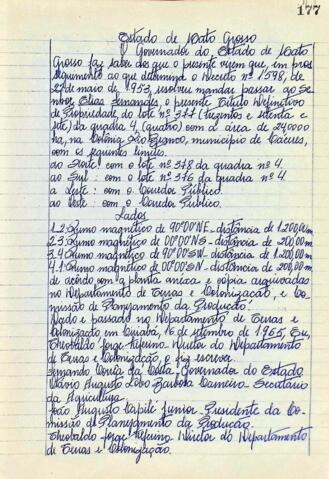 177
Estado de Mato Grosso
O Governador do Estado de Mato
Grosso faz saber aos que o presente virem que, em pros
seguimento ao que determina o Decreto nº 1598, de
22 de maio de 1953, resolveu mandar passar ao Se
nhor Elias Fernandes, o presente Título Definitivo
de Propriedade do lote nº 277 (duzentos e setenta e
sete) da quadra 4 (quatro) com a área de 240000
ha, na Colônia Rio Branco, município de Cáceres,
com os seguintes limites:
ao Norte: com o lote nº 278 da quadra nº 4.
ao Sul: com o lote nº 276 da quadra nº 4
a Leste: com o Corredor Público.
ao Oeste: com o Corredor Público.
Lados
1.2: Rumo magnético de 90º00'NE - distância de 1.200,00m
2.3: Rumo magnético de 00º00'NS - distância de 200,00m
3.4: Rumo magnético de 90º00'SW - distância de 1.200,00m
4.1: Rumo magnético de 00º00'SN - distância de 200,00m
de acôrdo com a planta anexa e cópia arquivadas
no Departamento de Terras e Colonização, e Co
missão de Planejamento da Produção.
Traçado e passado no Departamento de Terras e
Colonização em Cuiabá, 16 de setembro de 1965, Eu,
Theobaldo Jorge Diretor do Departamento
de Terras e Colonização, o fiz escrever.
Fernando Corrêa da Costa, Governador do Estado
Otávio Augusto Lobo Barbosa Carneiro Secretário
da Agricultura
João Augusto Capilé Junior Presidente da Co
missão de Planejamento da Produção.
Theobaldo Jorge Diretor do Departamento
de Terras e Colonização.